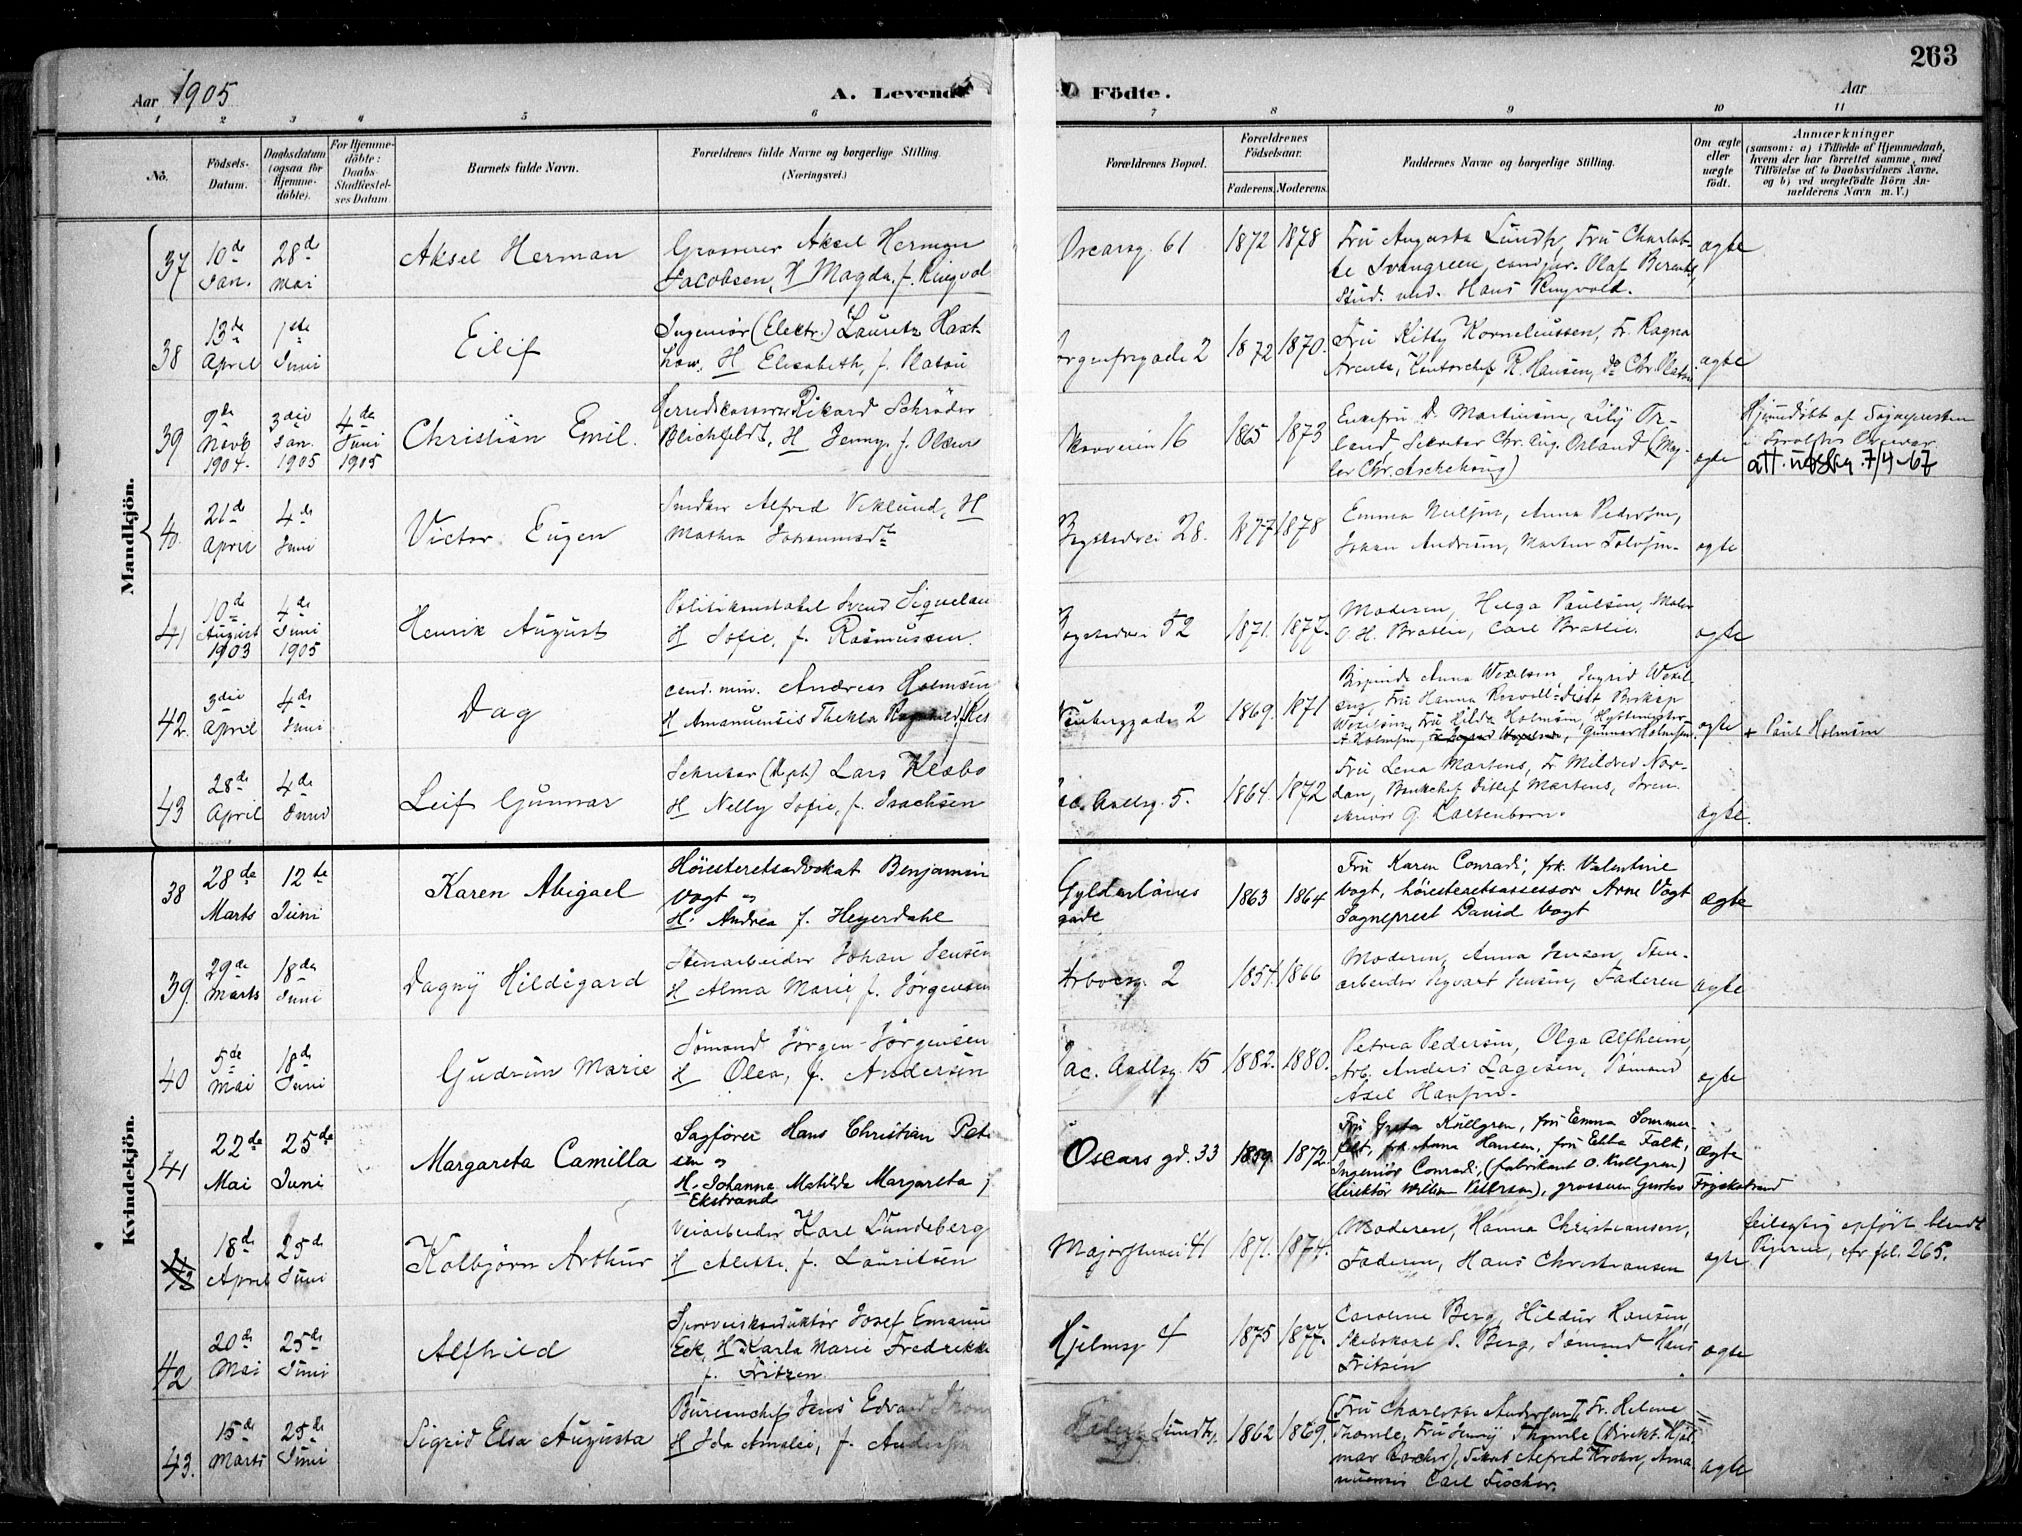 263
Aar 1905
A. Levende Födte.
Aar
1 2 3 4 5 6 7 8 9 10 11
No.
Födsels-Datum.
Daabsdatum (ogsaa for Hjemme-döbte).
For Hjemme-döbte: Daabs Stadfæstel-ses Datum.
Barnets fulde Navn.
Forældrenes fulde Navne og borgerlige Stilling.
(Næringsvei.)
Forældrenes Bopæl.
Forældrenes Födselsaar.
Faderens. Moderens.
Faddernes Navne og borgerlige Stilling.
Om ægte eller uægte födt.
Anmærkninger
(saasom: a) i Tilfælde af Hjemmedaab,
hvem der har forrettet samme, med
Tilföielse af to Daabsvidners Navne.
og b) ved uægtefödte Börn An-
melderens Navn m. V.)
Mandkjön.
37 10de Jan. 28de Mai Aksel Herman
Grosserer Aksel Herman
Jacobsen, H Magda f. Ringvol
Oscarsg. 61 1872 1878
Fru Augusta Lundh, Fru Charlot-
te Svangreen, cand. jur. Olaf
Stud. med. Hans Ringvold.
ægte
38 13de April 1ste Juni Eilif
Ingeniör (Elektr.) Lauritz Haxt
how, H Elisabeth, f. Platou
orgenfrigade 2 1872 1870.
Fru Kitty Korneliussen, Fr. Ragna
Kontorchef R. Hansen, do Chr. Platou
ægte
39 9de Novb 1904. 3die Jan. 1905 4de Juni 1905 Christian Emil.
Herredskasserer Rikard Schröder
Blichfeldt, H Jenny, f. Olsen
Skovveien 16 1865 1873
Enkefru D. Martinsen, Lily Or-
land, Sekretær Chr. Aug. Orland (Ma-
jor Chr. Aschehoug)
ægte
Hjemdöbt af Sognepresten
att. utstej. 7/4-67
40 21de April 4de Juni Victor Eugen
Snedker Alfred Viklund, H
Mathea Johannesdt
Bogstadvei 28. 1877 1878
Emma Nielsen, Anna Pedersen,
Johan Andersen, Martin Tolofsen.
ægte
41 10de August 1903 4de Juni 1905 Henrik August
Politikonstabel Svend Siqveland
H Sofie, f. Rasmussen.
Bogstadvei 52 1871. 1877.
Moderen, Helga Paulsen, Maler
O. H. Bratlie, Carl Bratlie.
ægte
42. 3die April 4de Juni Dag
cand. min. Andreas Holmsen
H Amanuensis Thekla
Neubergade 2 1869. 1871
Bispinde Anna Wexelsen, Ingrid Wexel-
sen, Fru Hanna Resvoll-Dieset Biskop
Wexelsen, Fru Hilda Holmsen, Hyttemester
A. Holmsen, Gunnar Holmsen
ægte
+ Paul Holmsen
43 28de April 4de Juni Leif Gunnar
Sekretær (Dept) Lars Klæbo
H Nelly Sofie, f. Isachsen
Jac. Aallsg. 5. 1864. 1872
Fru Lena Martens, Fr. Mildred Nor-
dan, Bankchef Ditlef Martens, Soren-
skriver G. Caltenborn.
ægte.
Kvindekjön.
38 28de Marts 12te Juni Karen Abigael
Höiesteretsadvokat Benjamin
Vogt og
H. Andrea f. Heyerdahl
Gyldenlöves
gade
1863 1864
Fru Karen Conradi, frk. Valentine
Vogt, höiesteretsassessor Arne Vogt
Sogneprest David Vogt
ægte
39. 29de Marts 18de Juni Dagny Hildigard
Stenarbeider Johan Jensen
H Alma Marie, f. Jörgensen
Arboesg. 2 1854. 1866
Moderen, Anna Jensen, Sten-
arbeider Sigvart Jensen, Faderen
ægte
40 5de Mai 18de Juni Gudrun Marie
Sömand Jörgen Jörgensen
H Olea, f. Andersen
Jac. Aallsg. 15 1882. 1880.
Petrea Pedersen, Olga Alfheim,
Arb. Anders Lagesen, Sömand
Axel Hansen.
ægte
41 22de Mai 25de Juni Margareta Camilla
Sagförer Hans Christian Peter
sen og
H. Johanna Matilda Margareta f
Ekstrand
Oscars gd. 33 1859. 1872.
Fru Greta Kullgren, fru Emma Sommer-
felt, frk. Anna Hansen, fru Ebba Falk,
Ingeniör Conradi, (fabrikant O. Kullgren)
(direktör William Petersen), grosserer Gustav
ægte
42 18de April 25de Juni Kolbjörn Arthur
Veiarbeider Karl Lundeberg
H Alette, f. Lauritsen
Majorstuvei 41 1871. 1874.
Moderen, Hanna Christiansen,
Faderen, Hans Christiansen
ægte
feilagtig opfört blandt
Pigerne, cfr fol. 265.
42 20de Mai 25de Juni Alfhild
Sporveiskonduktör Josef Emanu
Eek, H Karla Marie Fredrikke
f. Fritzen
Hjelmsg 4 1875 1877.
Caroline Berg, Hildur Hansen,
Skibskapt. S. Berg, Sömand Hans
Fritsen
ægte
43. 15de Marts 25de Juni Sigrid Elsa Augusta
Bureauchef Jens Edvard Thom
H Ida Amalei, f. Andersen
Eilert Sundts, 1862 1869.
(Fru Charlotte Andersen), Fr. Helene
Thomle, Fru Jenny Thomle (Direkt. Hjal-
mar), Sekret Alfred Krohn, Ama
nuensis Carl Fischer.
ægte